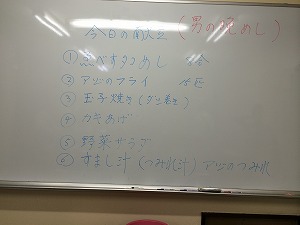 今日の献立 (男の晩めし)
① 恵べすタコめし
② アジのフライ 1匹
③ 玉子焼き(ダシ巻き)
④ カキあげ
⑤ 野菜サラダ
⑥ すまし汁 (つみれ汁) アジのつみれ